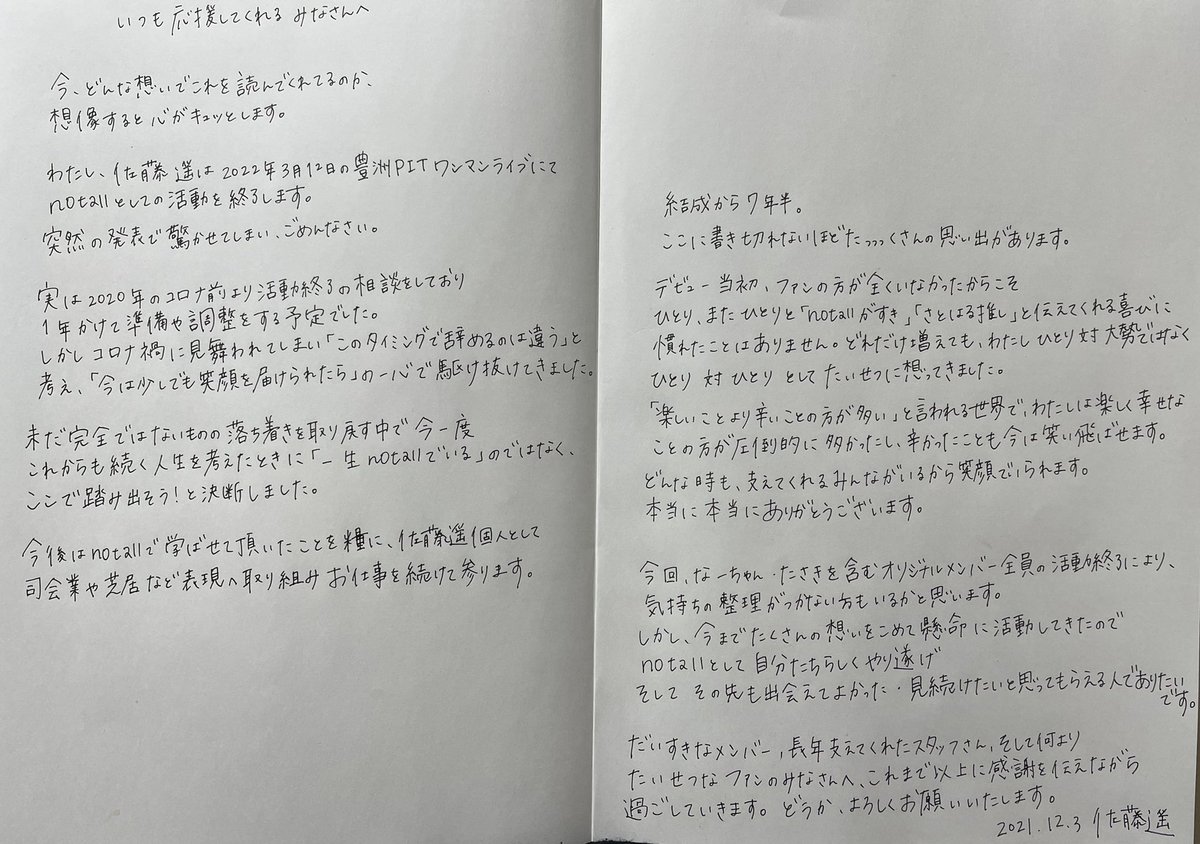 いつも応援してくれるみなさんへ
今、どんな想いでこれを読んでくれてるのか、
想像すると心がキュッとします。
わたし、佐藤遥は2022年3月12日の豊洲PITワンマンライブにて
notallとしての活動を終了します。
突然の発表で驚かせてしまい、ごめんなさい。
実は2020年のコロナ前より活動終了の相談をしており
1年かけて準備や調整をする予定でした。
しかしコロナ禍に見舞われてしまい「このタイミングで辞めるのは違う」と
考え、「今は少しでも笑顔を届けられたら」の一心で駆け抜けてきました。
未だ完全ではないものの落ち着きを取り戻す中で今一度
これからも続く人生を考えたときに「一生notallでいる」のではなく、
ここで踏み出そう!と決断しました。
今後はnotallで学ばせて頂いたことを糧に、佐藤遥個人として
司会業や芝居など表現へ取り組みお仕事を続けて参ります。
結成から7年半。
ここに書き切れないほどたっっっくさんの思い出があります。
デビュー当初、ファンの方が全くいなかったからこそ
ひとり、またひとりと「notallがすき」「さとはる推し」と伝えてくれる喜びに
慣れたことはありません。どれだけ増えても、わたしひとり対大勢ではなく
ひとり対ひとりとしてたいせつに想ってきました。
「楽しいことより辛いことの方が多い」と言われる世界で、わたしは楽しく幸せな
ことの方が圧倒的に多かったし、辛かったことも今は笑い飛ばせます。
どんな時も、支えてくれるみんながいるから笑顔でいられます。
本当に本当にありがとうございます。
今回、なーちゃん・たさきを含むオリジナルメンバー全員の活動終了により、
気持ちの整理がつかない方もいるかと思います。
しかし、今までたくさんの想いをこめて懸命に活動してきたので
notallとして自分たちらしくやり遂げ
そしてその先も出会えてよかった・見続けたいと思ってもらえる人でありたい
です。
だいすきなメンバー、長年支えてくれたスタッフさん、そして何より
たいせつなファンのみなさんへ、これまで以上に感謝を伝えながら
過ごしていきます。どうか、よろしくお願いいたします。
2021.12.3 佐藤遥